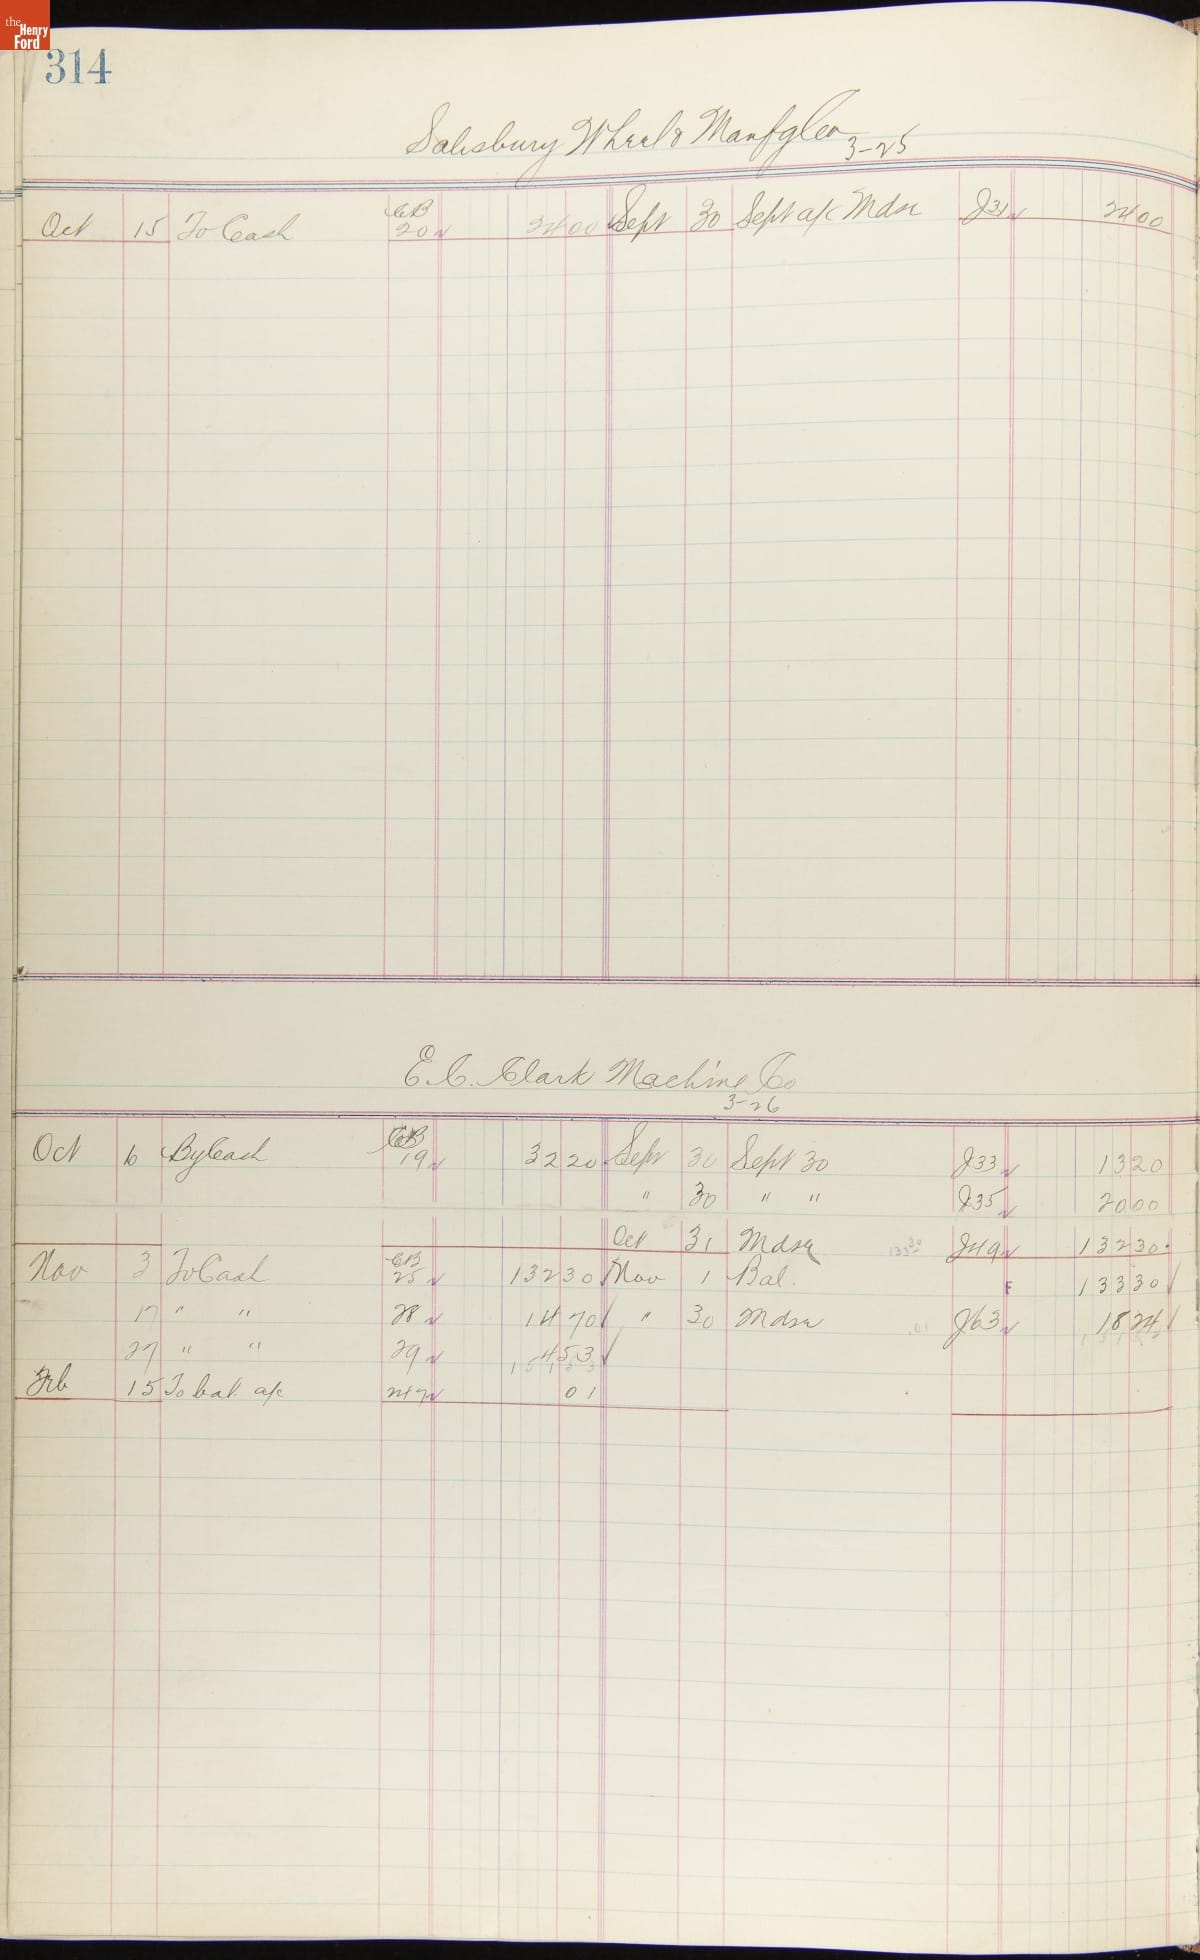 the Henry Ford
314
Salisbury Wheel & Manfg Co
3-25
Oct 15 To Cash CB 20 24 00 Sept 30 Sept a/c Mdse J31 24 00
E. C. Clark Machine Co
3-26
Oct 6 By Cash CB 19 32 20 Sept 30 Sept 30 J33 13 20
" 30 " " J35 20 00
Oct 31 Mdse J49 132 30
Nov 3 To Cash CB 25 132 30 Nov 1 Bal. F 133 30
17 " " 28 14 70 " 30 Mdse J63 18 24
27 " " 29 4 53
Feb 15 To bal. a/c 01